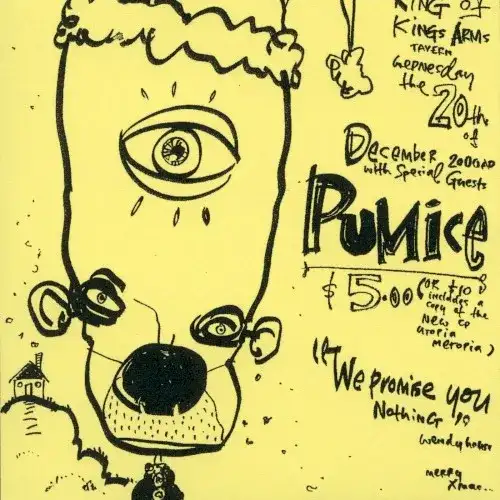 KING of
KINGS ARMS
TAVERN
Wednesday
the
20th
of
December 2000AD
with Special Guests
PUMICE
$5.00 (OR $10
includes a
copy of the
New CD
utopia
metopia)
"We promise you
Nothing"
wendyhouse
merry
xmas...